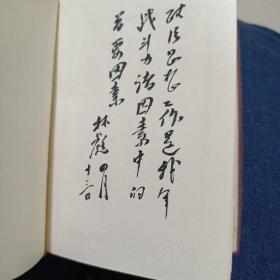 政治思想工作是我军
战斗力诸因素中的
首要因素
林彪 四月
十三日